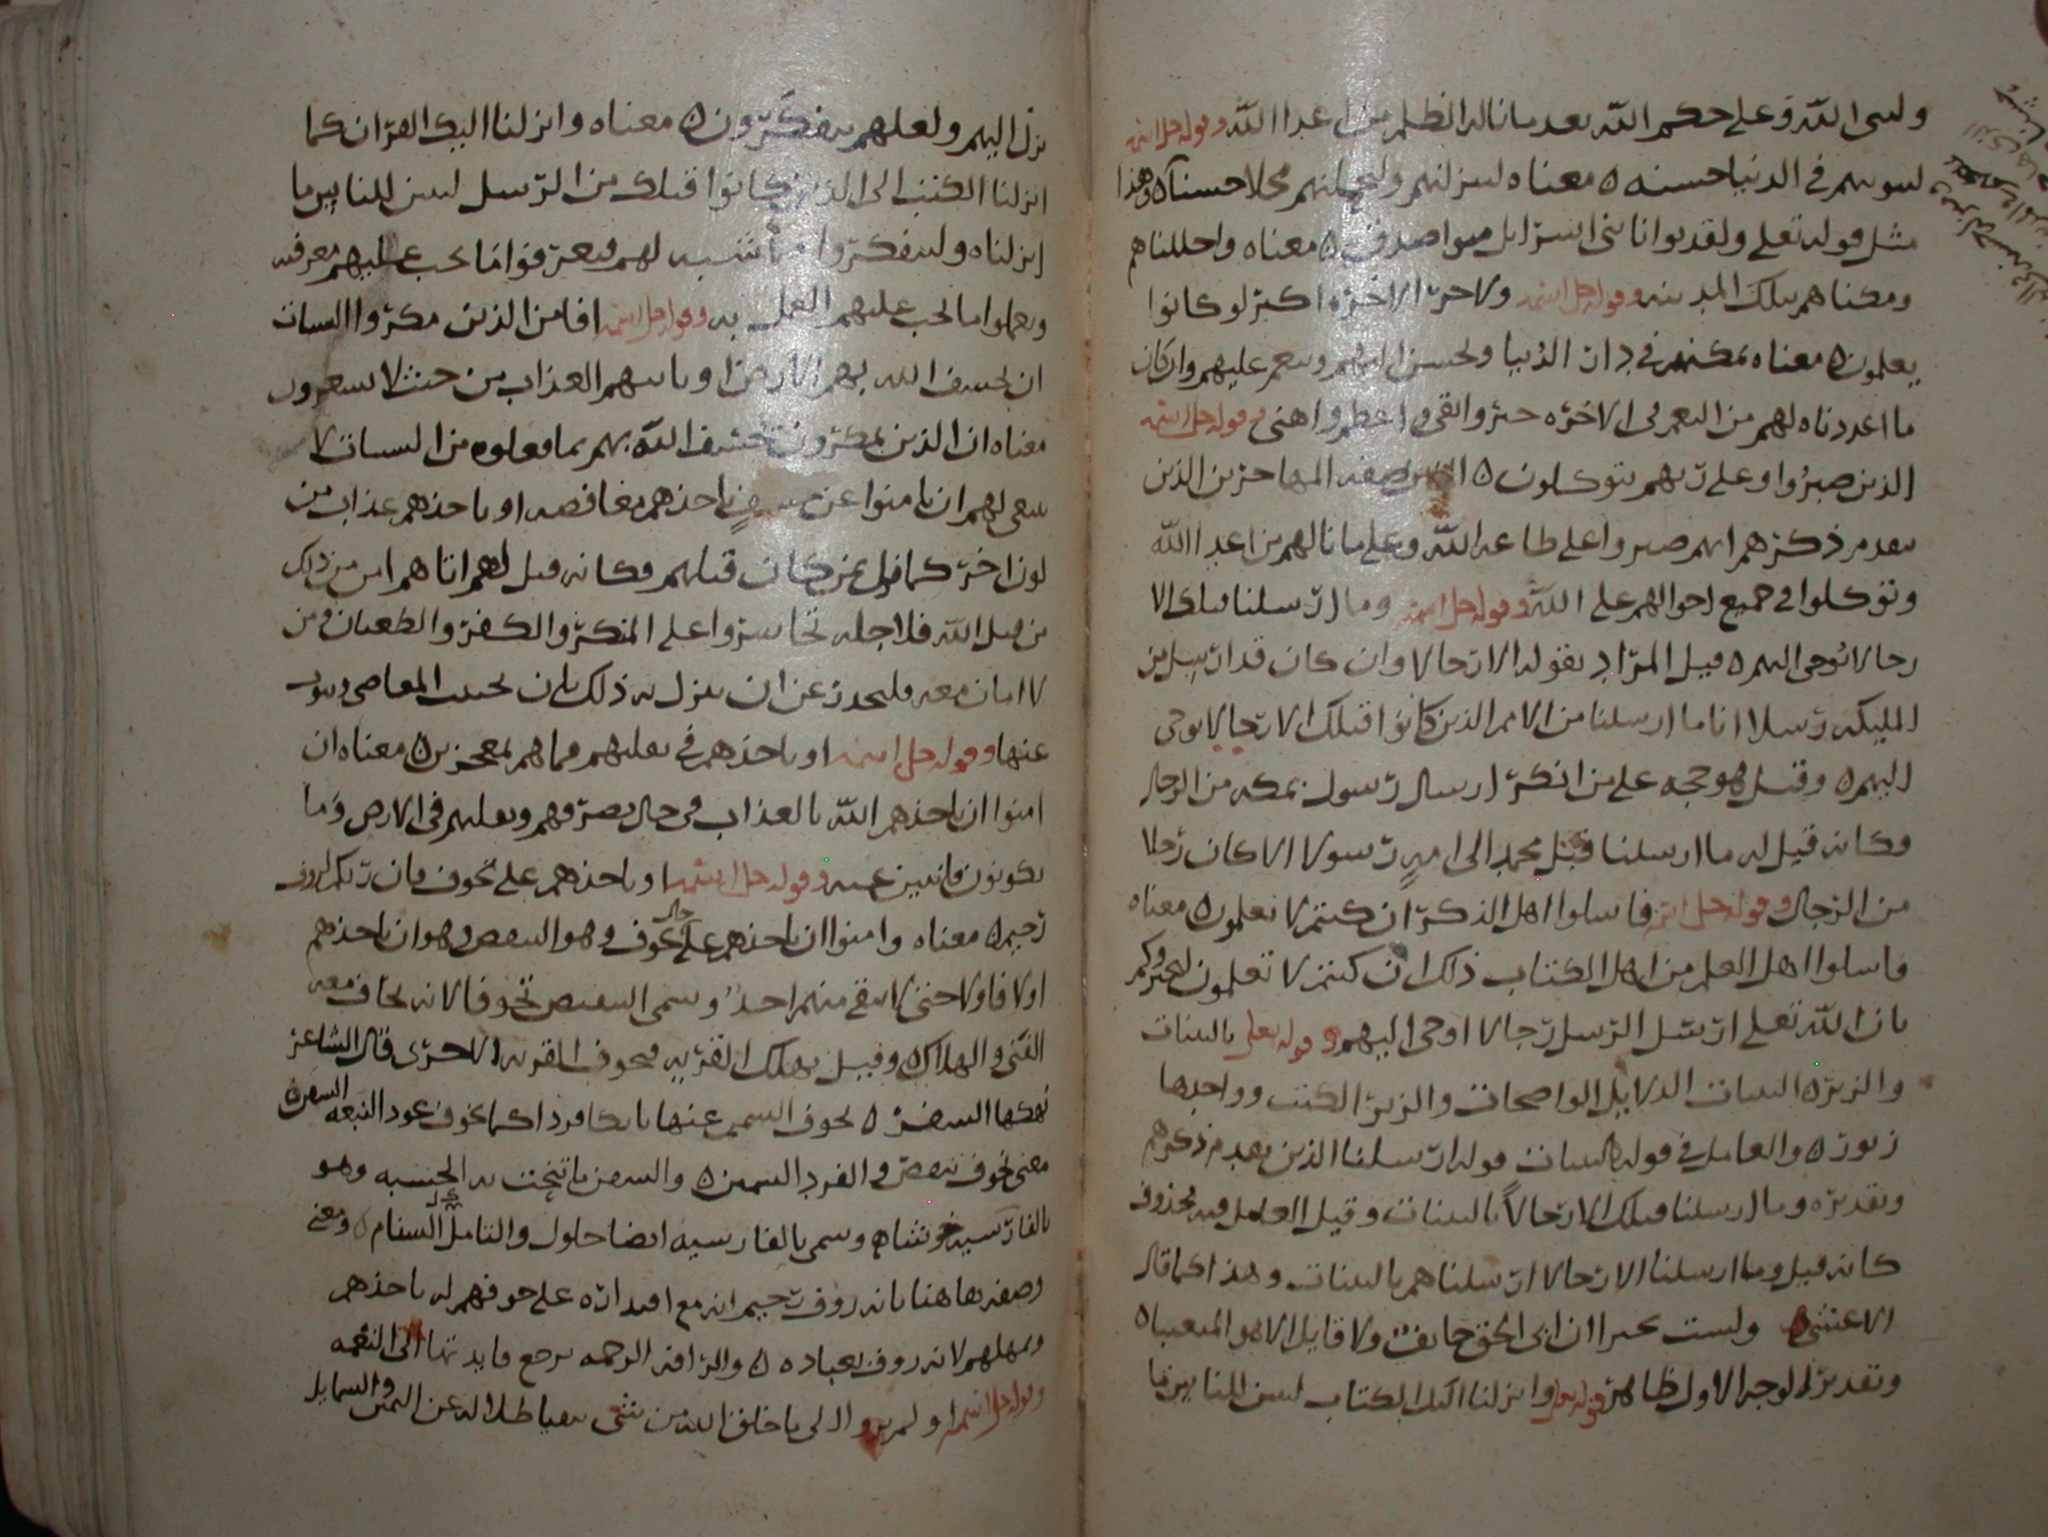 ولنبي الله وعلى حكم الله بعد ما ناله الظلم من اعدا الله وقوله جل اسمه
لنبوينهم في الدنيا حسنه ه معناه لننزلنهم ولنحلنهم محلا حسنا ه وهذا
مثل قوله تعلى ولقد بوانا بني اسرايل مبوا صدق ه معناه واحللناهم
ومكناهم بتلك المدينه وقوله جل اسمه ولاجر الاخره اكبر لو كانوا
يعلمون ه معناه نمكنهم في دار الدنيا ونحسن اليهم وننعم عليهم وان كان
ما اعددناه لهم من النعم في الاخره خير وابقى واعظم واهنى وقوله جل اسمه
الذين صبروا وعلى ربهم يتوكلون ه صفه المهاجرين الذين
تقدم ذكرهم انهم صبروا على طاعه الله وعلى ما نالهم من اعدا الله
وتوكلوا في جميع احوالهم على الله وقوله جل اسمه وما ارسلنا قبلك الا
رجالا نوحي اليهم ه قيل المراد بقوله الا رجالا وان كان قد ارسل من
المليكه رسلا انا ما ارسلنا من الامم الذين كانوا قبلك الا رجالا يوحى
اليهم ه وقيل هو حجه على من انكر ارسال رسول بمكه من الرجال
وكانه قيل له ما ارسلنا قبل محمد الى امه رسولا الا كان رجلا
من الرجال وقوله جل اسمه فاسلوا اهل الذكر ان كنتم لا تعلمون ه معناه
فاسلوا اهل العلم من اهل الكتاب ذلك ان كنتم لا تعلمون ليخبروكم
بان الله تعلى ارسل الرسل رجالا اوحى اليهم وقوله تعلى بالبينات
والزبر ه البينات الدلايل الواضحات والزبر الكتب وواحدها
زبور ه والعامل في قوله بالبينات قوله ارسلنا الذين تقدم ذكرهم
وتقديره وما ارسلنا قبلك الا رجالاً بالبينات وقيل العامل فيه محذوف
كانه قيل وما ارسلنا الا رجالا ارسلناهم بالبينات وهذا كما قال
الاعشى ه وليست مجيرا ان اتى الحي خايف ولا قايل الا هو المتعيبا ه
وتقدير الوجه الاول ظاهر وقوله تعلى وانزلنا اليك الكتاب لتبين للناس ما
نزل اليهم ولعلهم يتفكرون ه معناه وانزلنا اليك القران كما
انزلنا الكتب الى الذين كانوا قبلك من الرسل لتبين للناس ما
انزلناه وليتفكروا لهم فيعرفوا ما يجب عليهم معرفته
ويعملوا ما يجب عليهم العمل به وقوله جل اسمه افامن الذين مكروا السيات
ان يخسف الله بهم الارض او ياتيهم العذاب من حيث لا يشعرون
معناه ان الذين يمكرون يخسف الله بهم بما فعلوه من السيات لا
ينبغي لهم ان يامنوا عن ياخذهم مغافصه او ياخذهم عذاب من
لون اخر كما فعل بمن كان قبلهم وكانه قيل لهم اتاهم امن من ذلك
من قبل الله فلاجله تجاسروا على المنكر والكفر والطغيان ومن
لا امان معه فليحذر عن ان ينزل به ذلك بان يجتنب المعاصي ويتوب
عنها وقوله جل اسمه او ياخذهم في تقلبهم فما هم بمعجزين ه معناه ان
امنوا ان ياخذهم الله بالعذاب في حال تصرفهم وتقلبهم في الارض وما
يكونون فايتين عنه وقوله جل اسمه او ياخذهم على تخوف فان ربكم لروف
رحيم ه معناه وامنوا ان ياخذهم على حال تخوف وهو التنقص وهو ان ياخذهم
اولا فاولا حتى لا يبقى منهم احد وسمي التنقص تخوفا لانه يخاف معه
الفنى والهلاك ه وقيل يهلك القريه فتخوف القريه الاخرى قال الشاعر
نهكها السفر ه تخوف السير عنها تامكا قردا كما تخوف عود النبعه السفن ه
معنى تخوف تنقص والقرد السمين ه والسفن ما تنحت به الخشبه وهو
بالفارسيه وسمي بالفارسيه ايضا حلول والتامك السنام ه ومعنى
وصفه هاهنا بانه روف رحيم انه مع اقتداره على خوفهم له ياخذهم
ويمهلهم لانه روف بعباده ه والرافه الرحمه يرجع فايدتها الى النعمه
وقوله جل اسمه اولم يروا الى ما خلق الله من شي يتفيا ظلاله عن اليمين والشمايل